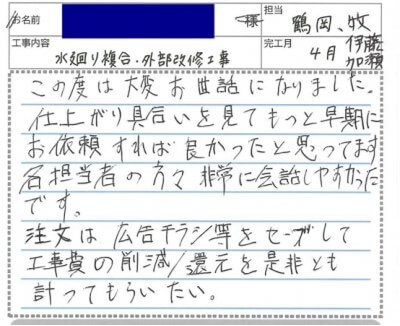 お名前 様 担当 鶴岡、牧
伊藤
加瀬
工事内容 水廻り複合・外部改修工事 完工月 4月
この度は大変お世話になりました。
仕上がり具合いを見てもっと早期に
お依頼すれば良かったと思ってます
各担当者の方々非常に会話しやすかった
です。
注文は広告チラシ等をセーブして
工事費の削減/還元を是非とも
計ってもらいたい。